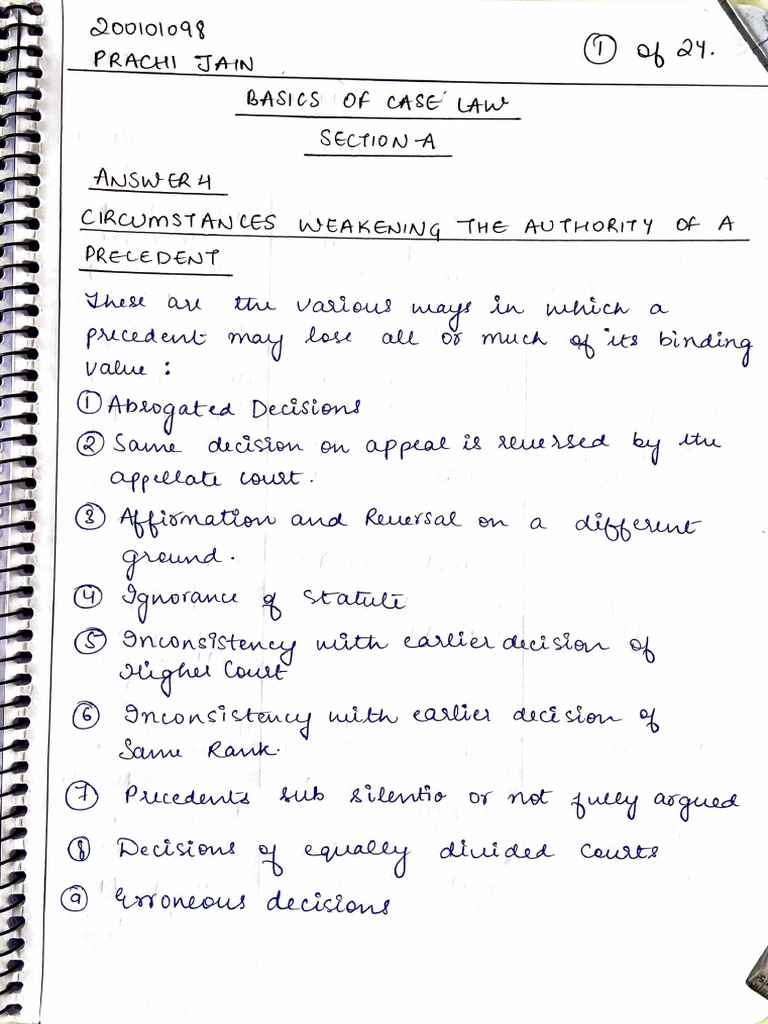 200101098
PRACHI JAIN
① of 24.
BASICS OF CASE LAW
SECTION-A
ANSWER 4
CIRCUMSTANCES WEAKENING THE AUTHORITY OF A
PRECEDENT
These are the various ways in which a
precedent may lose all or much of its binding
value :
① Abrogated Decisions
② Same decision on appeal is reversed by the
appellate court.
③ Affirmation and Reversal on a different
ground.
④ Ignorance of Statute
⑤ Inconsistency with earlier decision of
Higher Court
⑥ Inconsistency with earlier decision of
Same Rank.
⑦ Precedents sub silentio or not fully argued
⑧ Decisions of equally divided Courts
⑨ Erroneous decisions